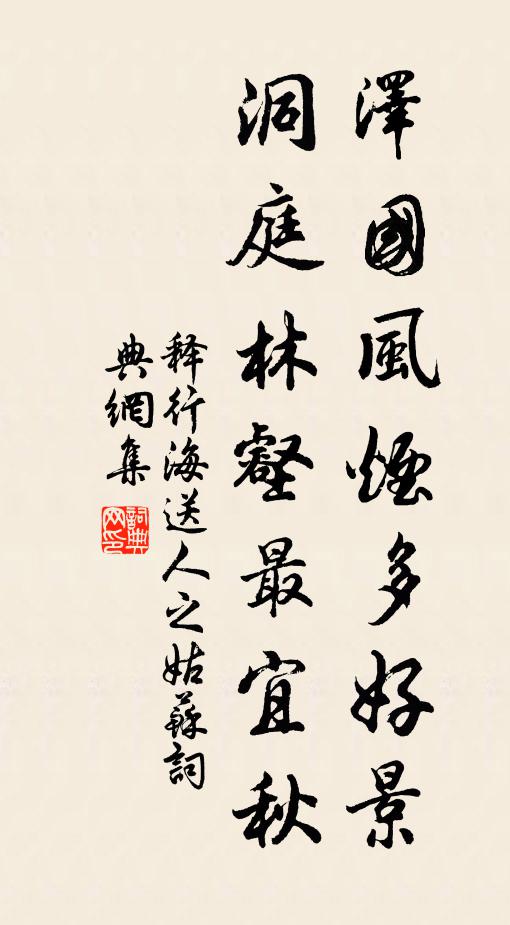 澤國風煙多好景
洞庭林壑最宜秋
释行海送人之姑蘇詞
典網集
詞典
网印